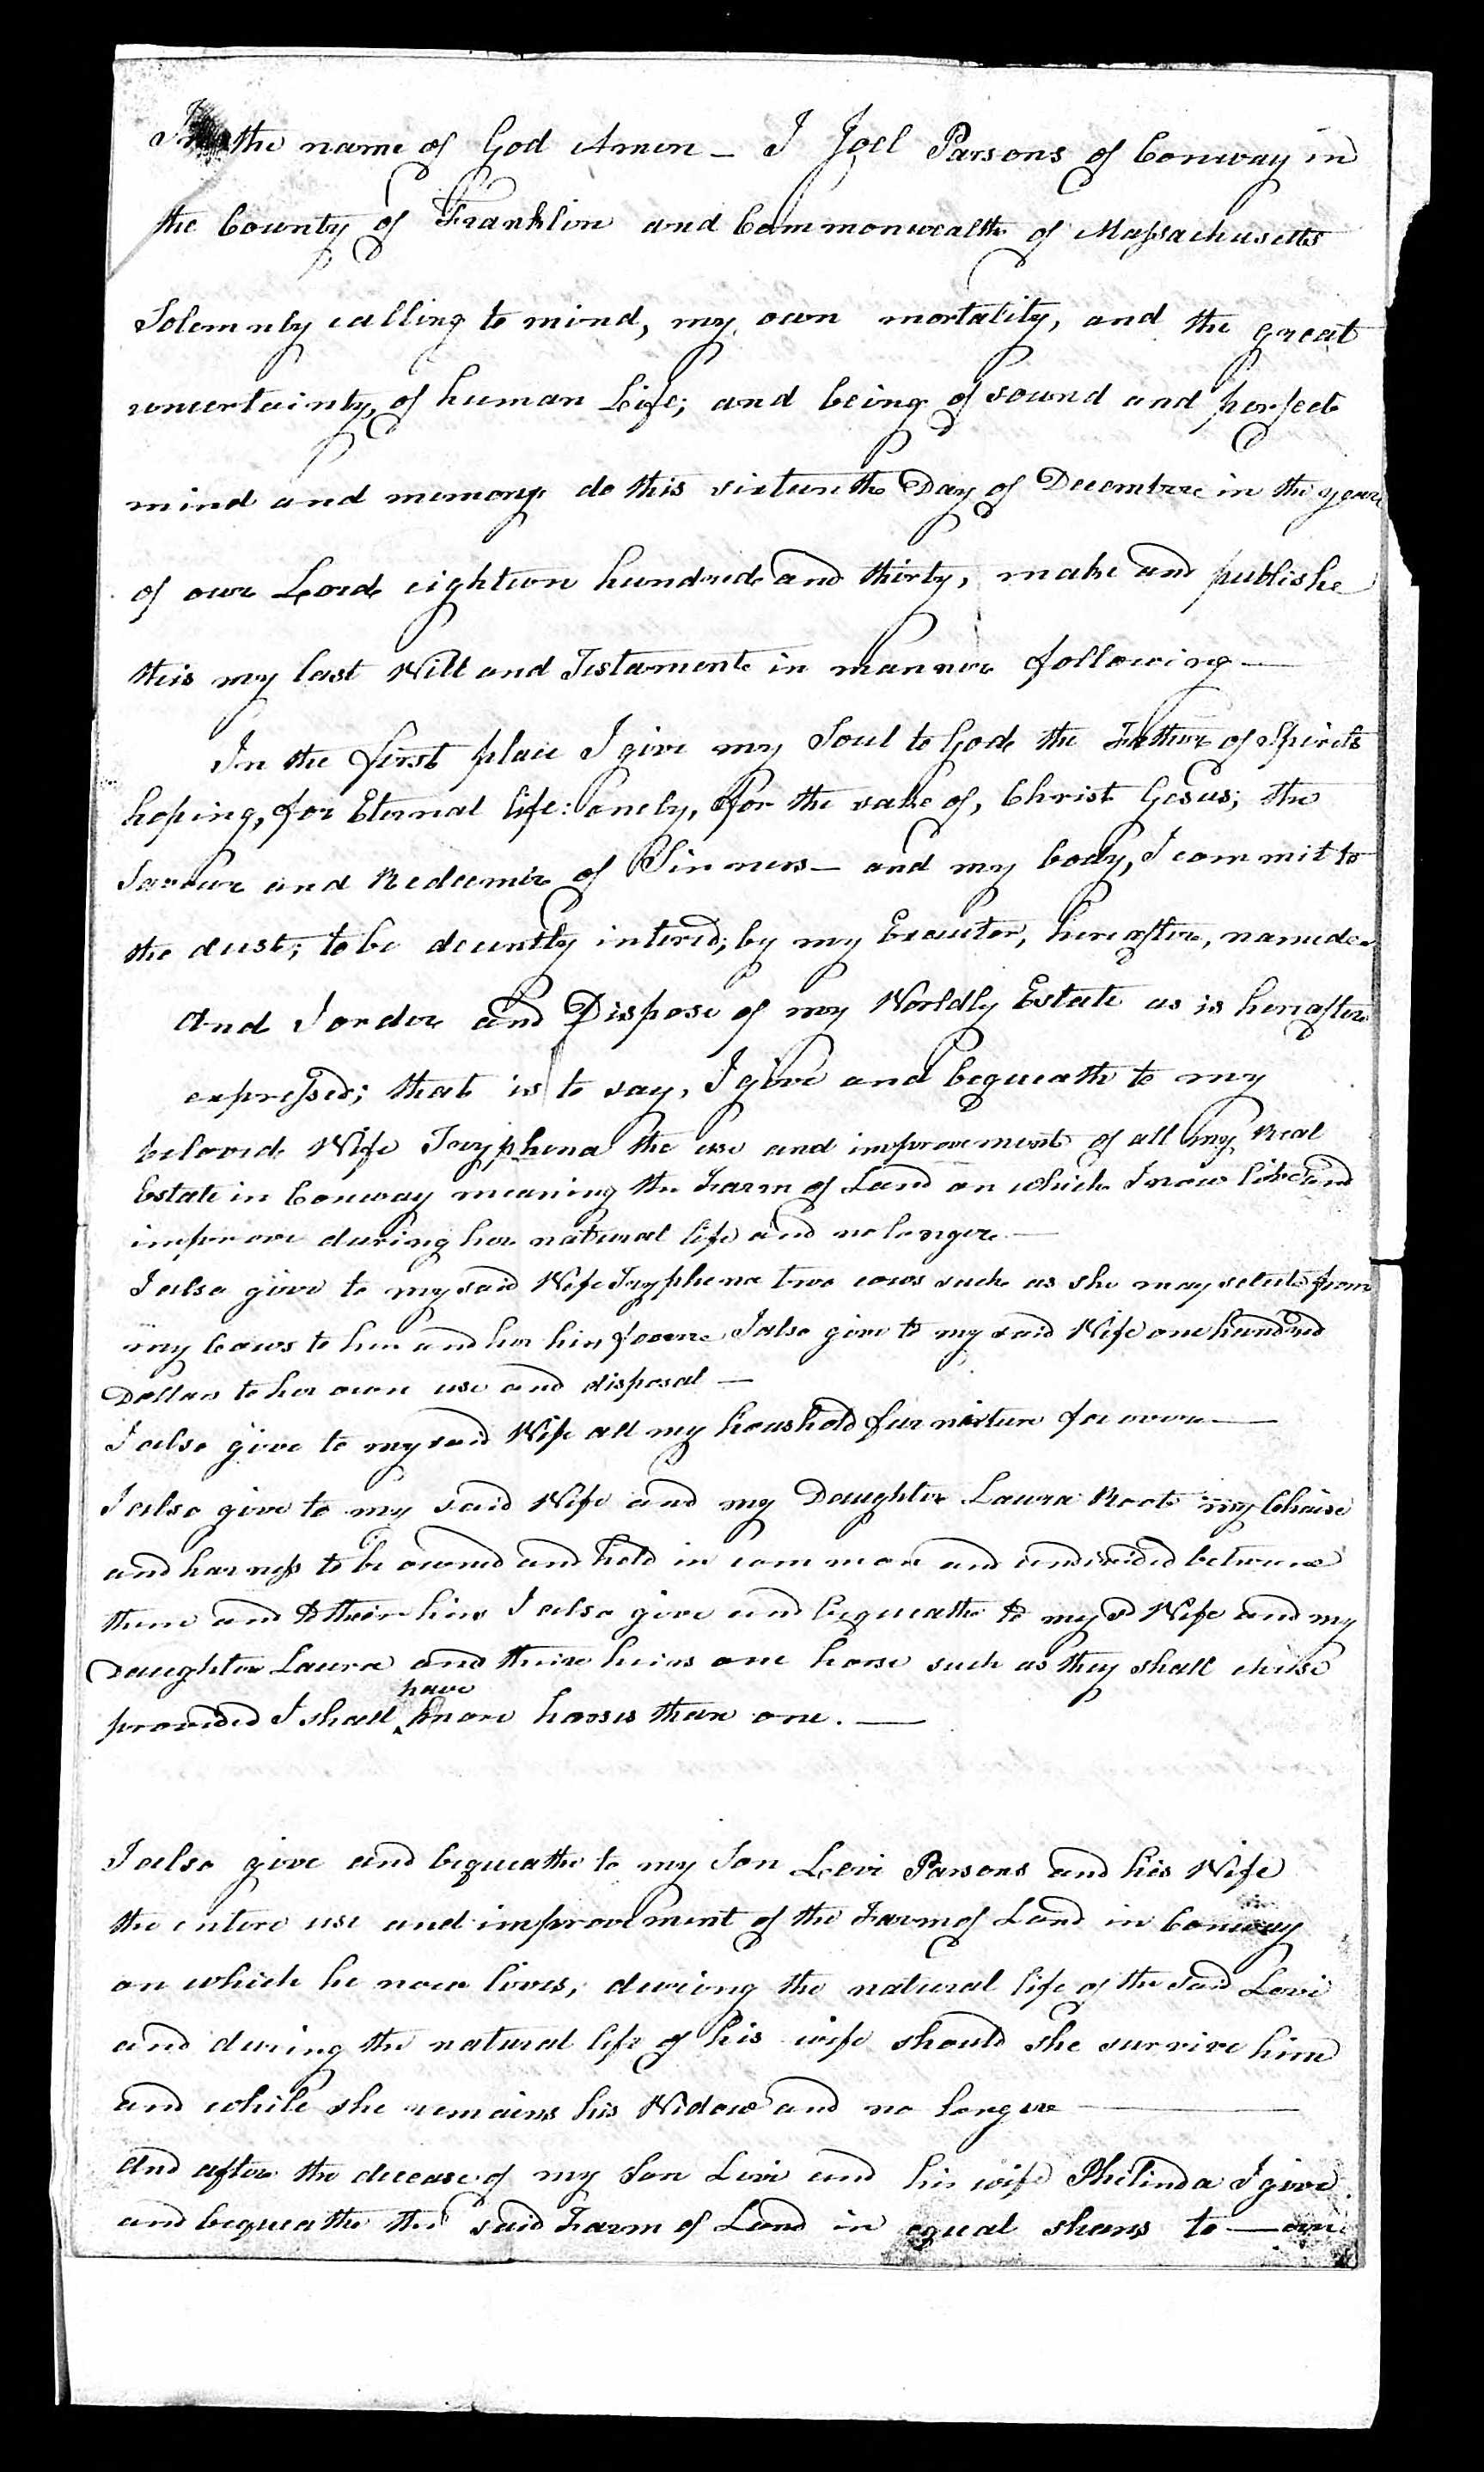 In the name of God Amen — I Joel Parsons of Conway in
the County of Franklin and Commonwealth of Massachusetts
Solemnly calling to mind, my own mortality, and the great
uncertainty, of human Life; and being of sound and perfect
mind and memory do this sixteenth Day of December in the year
of our Lord eighteen hundred and thirty, make and publish
this my last Will and Testament in manner following —
In the first place I give my Soul to God the Father of Spirits
hoping, for Eternal life: onely, for the sake of, Christ Gesus; the
Saviour and Redeemer of Sinners — and my body, I commit to
the dust; to be decently intered; by my Executor, hereafter, named
And I order and Dispose of my Worldly Estate as is hereafter
expressed; that is to say, I give and bequeath to my
beloved Wife Tryphena the use and improvement of all my Real
Estate in Conway meaning the Farm of Land on which I now live and
improve during her natural life and no longer —
I also give to my said Wife Tryphena two cows such as she may select from
my Cows to her and her heirs forever I also give to my said Wife one hundred
Dollars to her own use and disposal —
I also give to my said Wife all my houshold furniture forever —
I also give to my said Wife and my Daughter Laura Root my Chaise
and harness to be owned and held in common and undivided between
them and to their heirs I also give and bequeath to my sd Wife and my
Daughter Laura and their heirs one horse such as they shall chuse
provided I shall have more horses than one. —
I also give and bequeath to my Son Levi Parsons and his Wife
the entire use and improvement of the Farm of Land in Conway
on which he now lives, during the natural life of the said Levi
and during the natural life of his wife should she survive him
and while she remains his Widow and no longer —
And after the decease of my Son Levi and his wife Philinda I give
and bequeath the said Farm of Land in equal shares to —